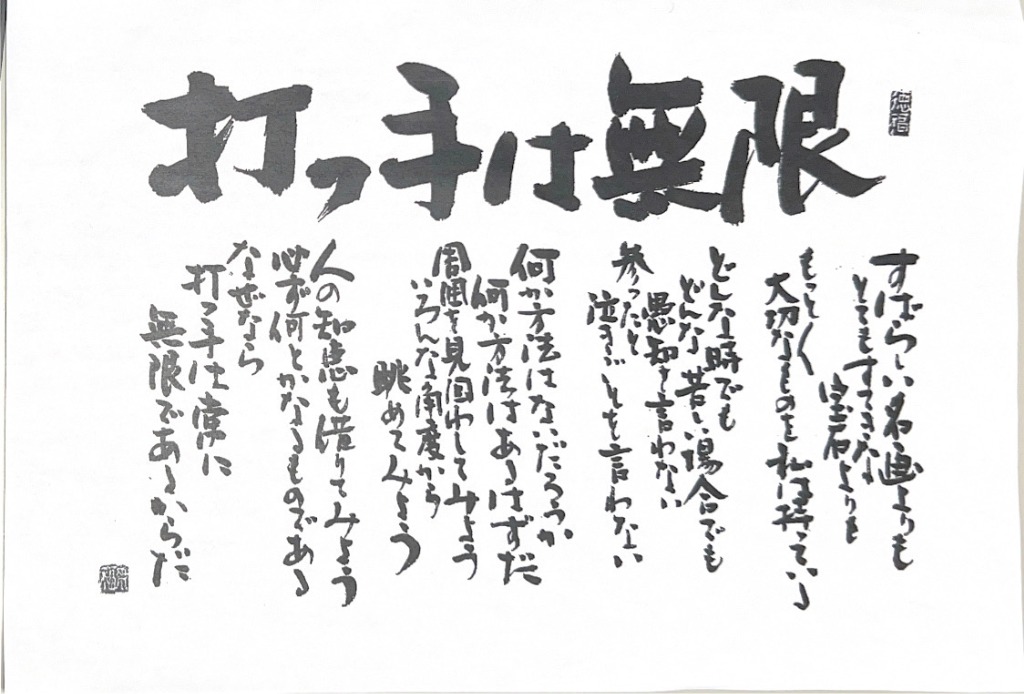 打つ手は無限
すばらしい名画よりも
とてもすてきな
宝石よりも
もっともっと
大切なものを私は持っている
どんな時でも
どんな苦しい場合でも
愚知を言わない
参ったと
泣きごとを言わない
何か方法はないだろうか
何か方法はあるはずだ
周囲を見回わしてみよう
いろんな角度から
眺めてみよう
人の知恵も借りてみよう
必ず何とかなるものである
なぜなら
打つ手は常に
無限であるからだ